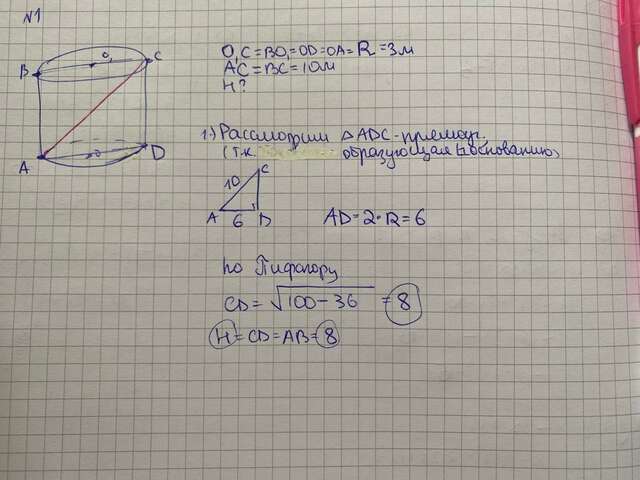 N1
O₁C=BO₁=OD=OA=R=3м
AC=BC=10м
H?
B
O₁
C
A
O
D
1) Рассмотрим △ADC-прямоуг.
(т.к. образующая ⊥ основанию)
C
10
A
6
D
AD=2·R=6
по Пифагору
CD=√100-36 =8
H=CD=AB=8